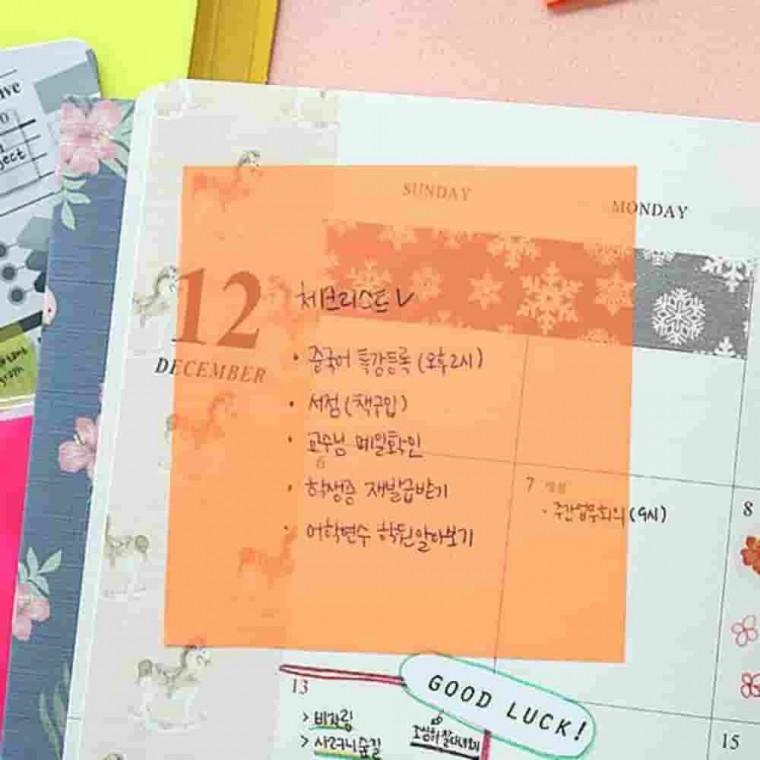 SUNDAY
MONDAY
12
DECEMBER
체크리스트
• 중국어 특강등록 (오후2시)
• 서점 (책구입)
• 교수님 메일확인
• 학생증 재발급받기
• 어학연수 학원알아보기
6
7
• 주간업무회의 (9시)
8
13
GOOD LUCK!
> 비자림
> 사려니숲길
15
ject